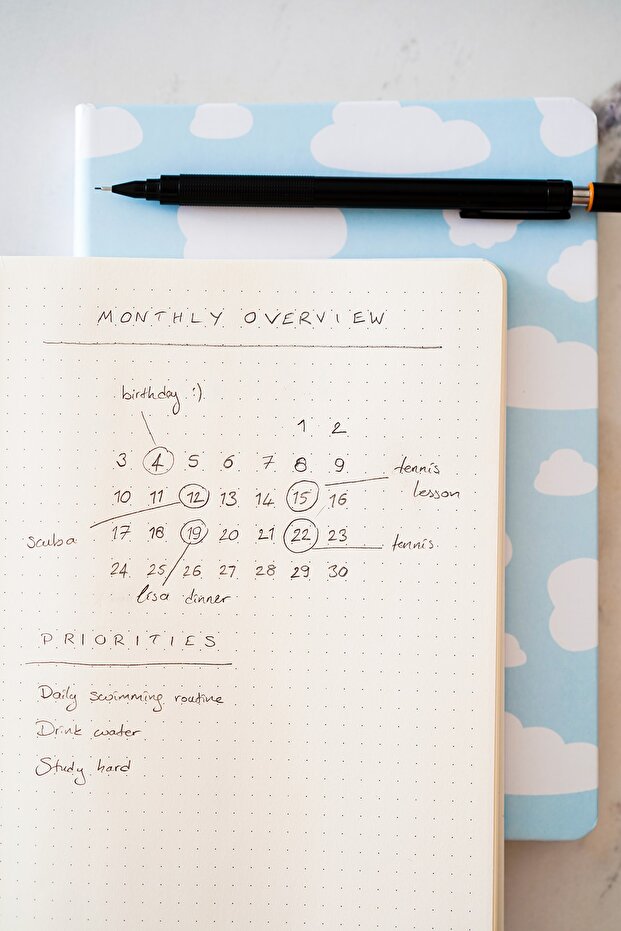 MONTHLY OVERVIEW
birthday :)
1 2
3 4 5 6 7 8 9
tennis
lesson
10 11 12 13 14 15 16
scuba
17 18 19 20 21 22 23
tennis
24 25 26 27 28 29 30
lisa dinner
PRIORITIES
Daily swimming routine
Drink water
Study hard